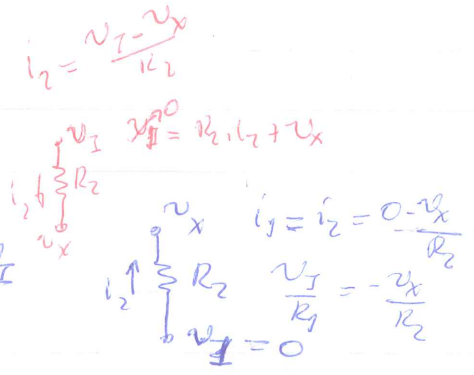 i₂ = (v_I - v_X)/R₂
v_I
= R₂ i₂ + v_X
i₂ R₂
v_X
v_X
i₁ = i₂ = (0 - v_X)/R₂
i₂ R₂
v_I/R₁ = - v_X/R₂
= 0